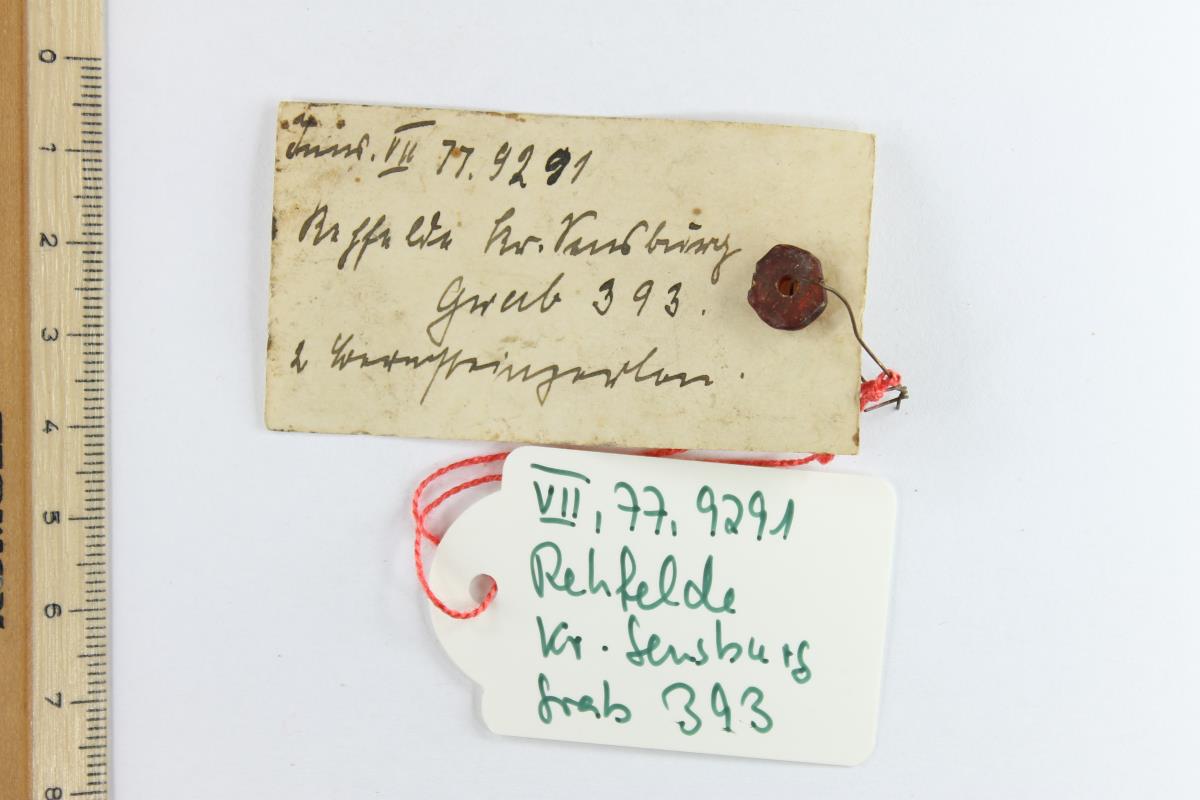 Inv. VII 77. 9291
Rehfelde Kr. Sensburg
Grab 393.
2 Bernsteinperlen.
VII, 77, 9291
Rehfelde
Kr. Sensburg
Grab 393
0
1
2
3
4
5
6
7
8